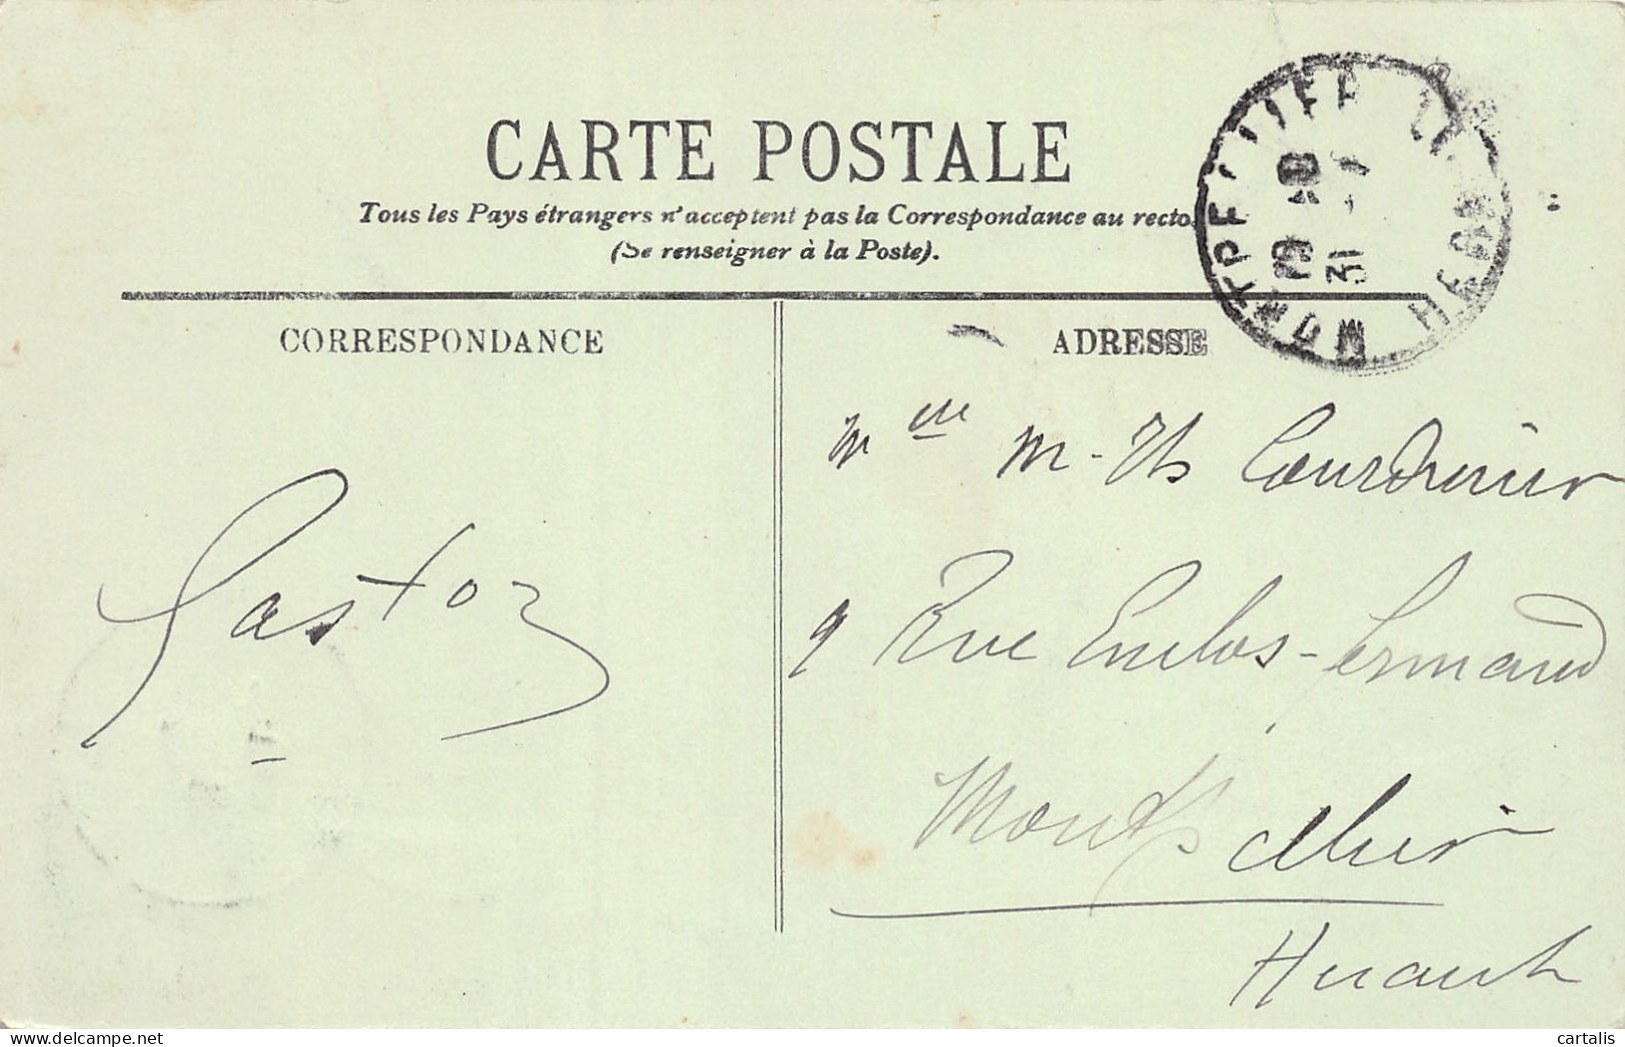 CARTE POSTALE
Tous les Pays étrangers n'acceptent pas la Correspondance au recto.
(Se renseigner à la Poste).
CORRESPONDANCE
ADRESSE
MONTPELLIER
HERAULT
19 40
31
Gaston
Mlle M-Th Courdurier
9 Rue Enclos-Fermaud
Montpellier
Hérault
cartalis